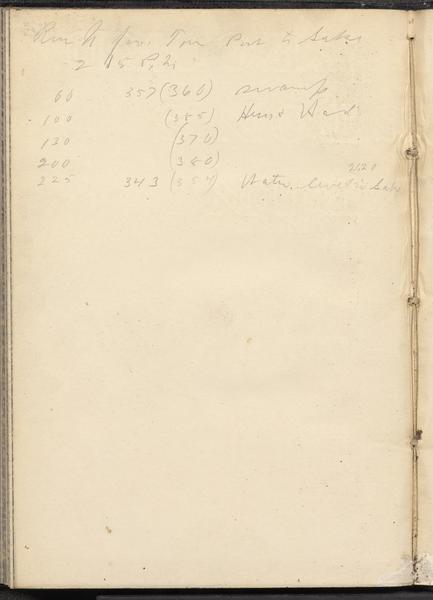 Run N for Town Post to Lake
2 15 P.M.
60 357 (360) swamp
100 (385) Hem & Hard
130 (370)
200 (380)
225 343 (354) Water level in Lake